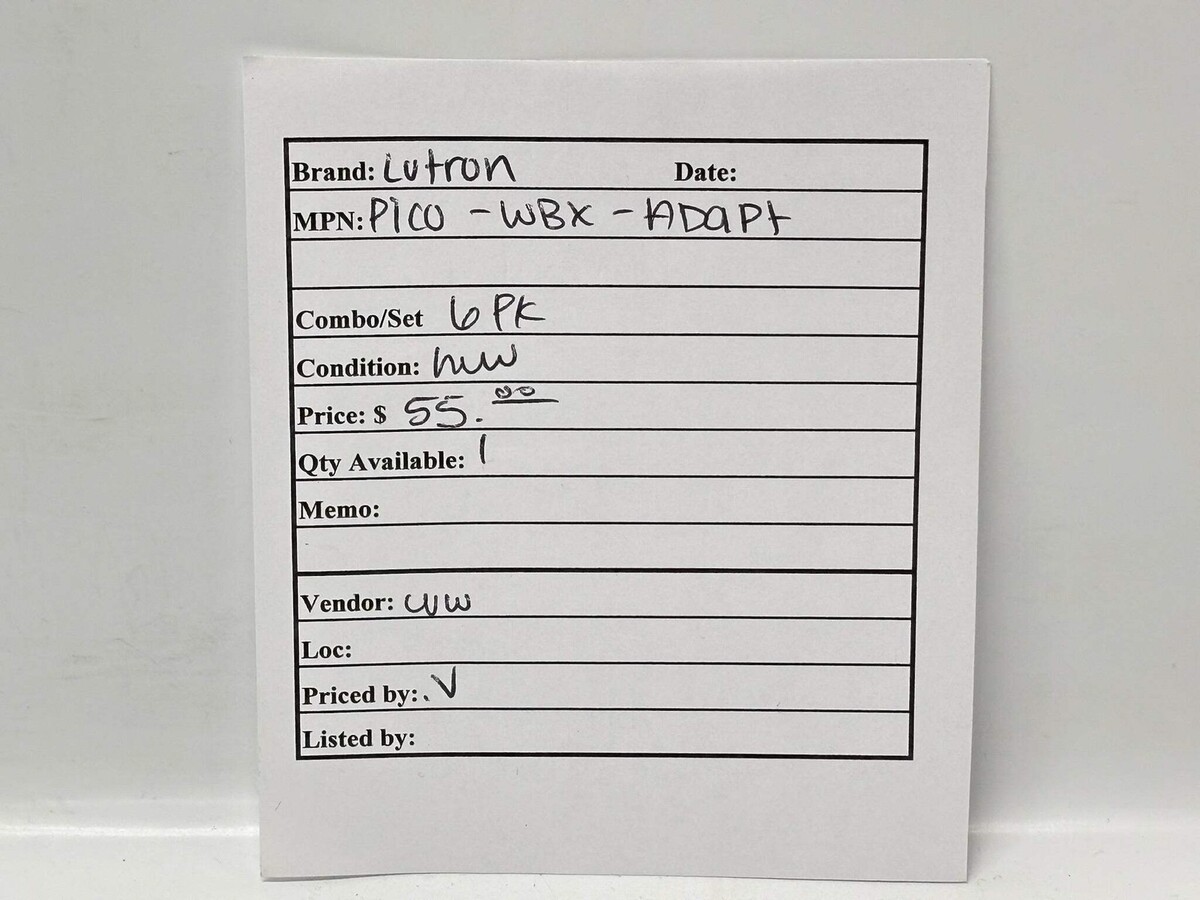 Brand: Lutron Date:
MPN: PICO - WBX - ADAPT
Combo/Set 6 PK
Condition: new
Price: $ 55.00
Qty Available: 1
Memo:
Vendor:
Loc:
Priced by: V
Listed by: